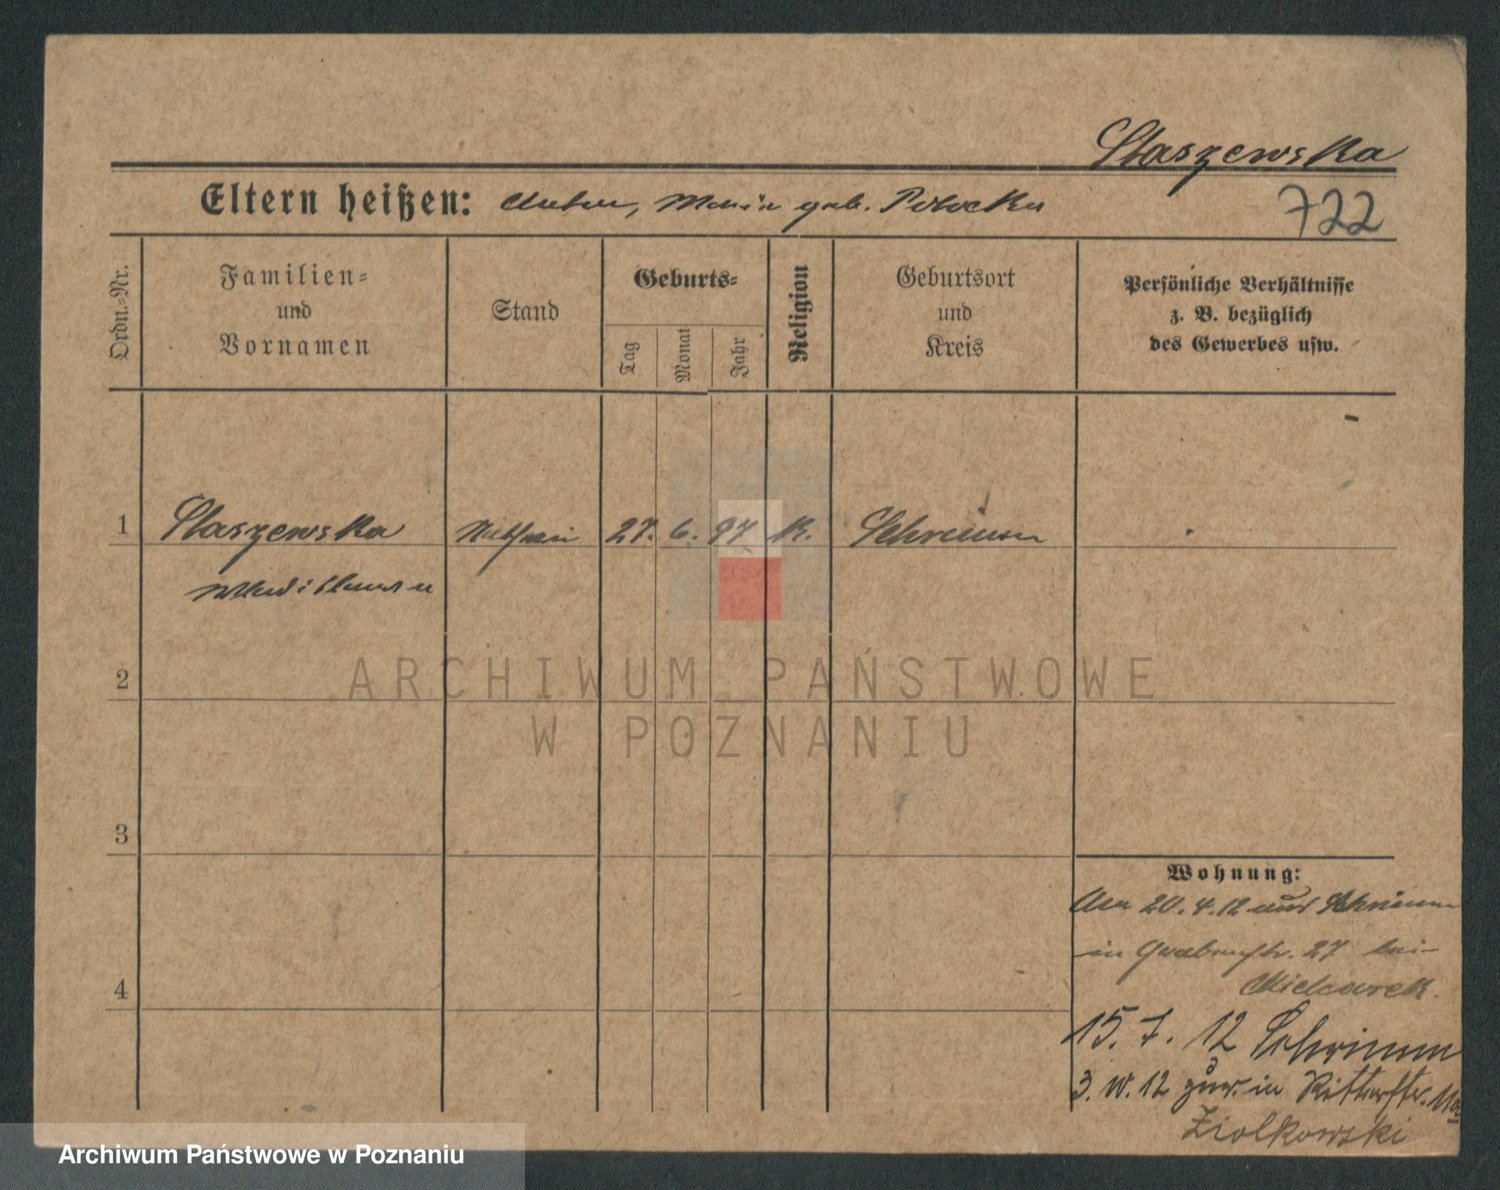 Staszewska
Eltern heißen: Anton, Maria geb. Potocka
722
Ordn.-Nr.
Familien-
und
Vornamen
Stand
Geburts-
Tag
Monat
Jahr
Religion
Geburtsort
und
Kreis
Persönliche Verhältnisse
z. B. bezüglich
des Gewerbes usw.
1 Staszewska 27. 6. 97 K. Schrimm
Wladislawa
2
ARCHIWUM PAŃSTWOWE
W POZNANIU
3
Wohnung:
Am 20. 4. 12 aus Schrimm
in Grabenstr. 27 bei
4
15. 7. 12 Schrimm
3. 12 zur. in Ritterstr.
Ziolkowski
Archiwum Państwowe w Poznaniu